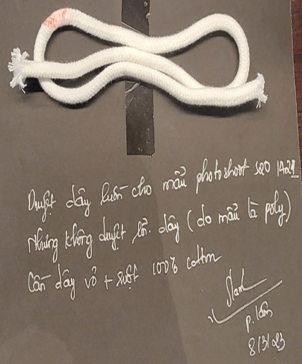 Duyệt dây luồn cho mẫu photoshoot SEO 1424
Nhưng không duyệt ... dây (do mẫu là poly)
Cần dây vỏ + ruột 100% cotton
P. Vân
8/3/23